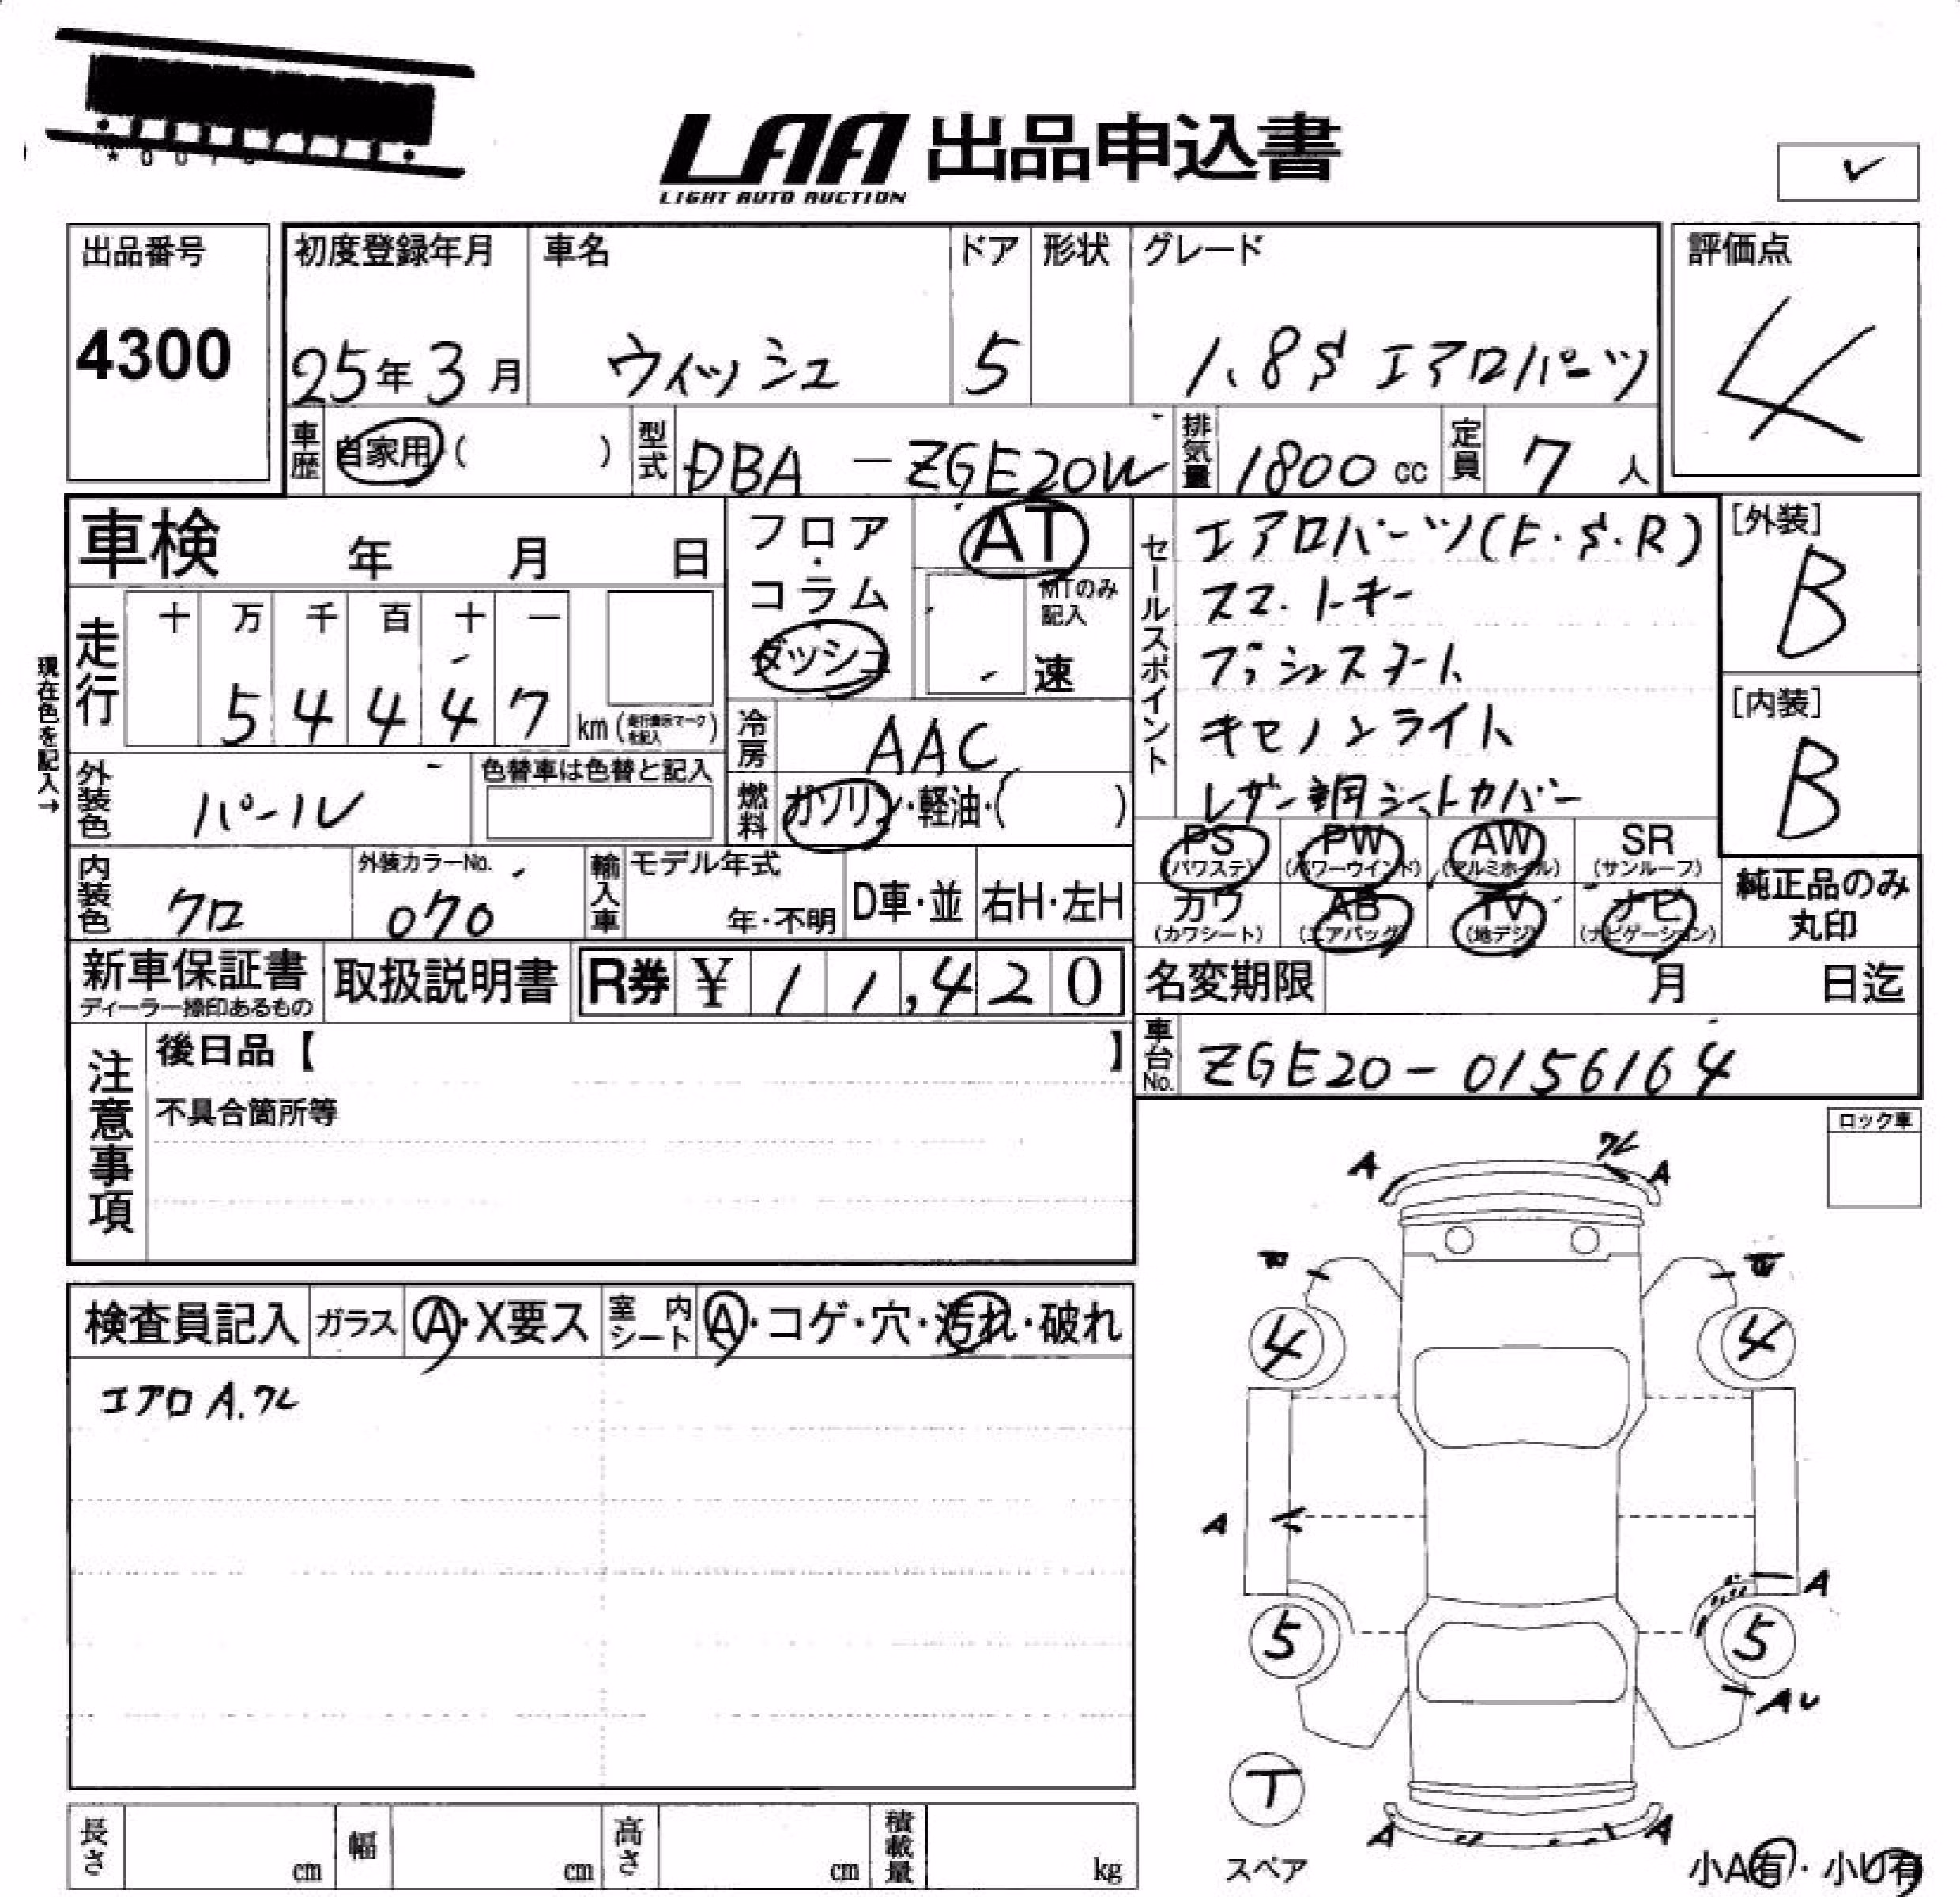 LAA 出品申込書
LIGHT AUTO AUCTION
出品番号
4300
初度登録年月 車名 ドア 形状 グレード
25年3月 ウィッシュ 5 1.8S エアロパーツ
評価点
4
車歴 自家用 ( ) 型式 DBA - ZGE20W 排気量 1800 cc 定員 7 人
車検 年 月 日
フロア・コラム・ダッシュ
AT
MTのみ記入
速
セールスポイント
エアロパーツ(F・S・R)
スマートキー
プッシュスタート
キセノンライト
レザー調シートカバー
[外装]
B
[内装]
B
現在色を記入→
走行 十 万 千 百 十 一
5 4 4 4 7 km (走行表示マークを記入)
冷房 AAC
外装色 パール
色替車は色替と記入
燃料 ガソリン・軽油・( )
PS (パワステ) PW (パワーウインド) AW (アルミホイル) SR (サンルーフ)
カワ (カワシート) AB (エアバッグ) TV (地デジ) ナビ (ナビゲーション)
純正品のみ丸印
内装色 クロ
外装カラーNo. 070
輸入車 モデル年式 年・不明 D車・並 右H・左H
新車保証書 ディーラー捺印あるもの
取扱説明書
R券 ¥ 11,420
名変期限 月 日迄
車台No. ZGE20-0156164
注意事項
後日品【 】
不具合箇所等
ロック車
検査員記入 ガラス A・X要ス 室内シート A・コゲ・穴・汚れ・破れ
エアロ A.ワレ
A ワレ A
4 4
A
A
5 5
AU
T
スペア
A A
小A有・小U有
長さ cm 幅 cm 高さ cm 積載量 kg